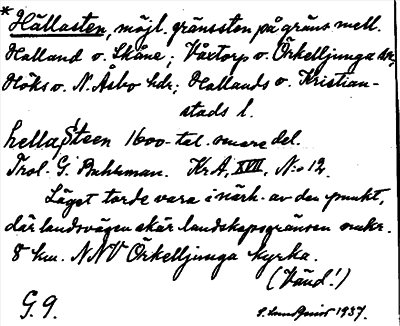 * Hällasten, möjl. gränssten på gräns mell.
Halland o. Skåne; Våxtorp o. Örkelljunga snr,
Höks o. N. Åsbo hdr; Hallands o. Kristian-
stads l.
hella Steen 1600-tal. senare del.
Trol. G. Buhrman. Kr A, XVII, N:o 12.
Läget torde vara i närh. av den punkt,
där landsvägen skär landskapsgränsen omkr.
8 km. NNV Örkelljunga kyrka.
(Vänd!)
G. 9.
S. Lundquist 1937.